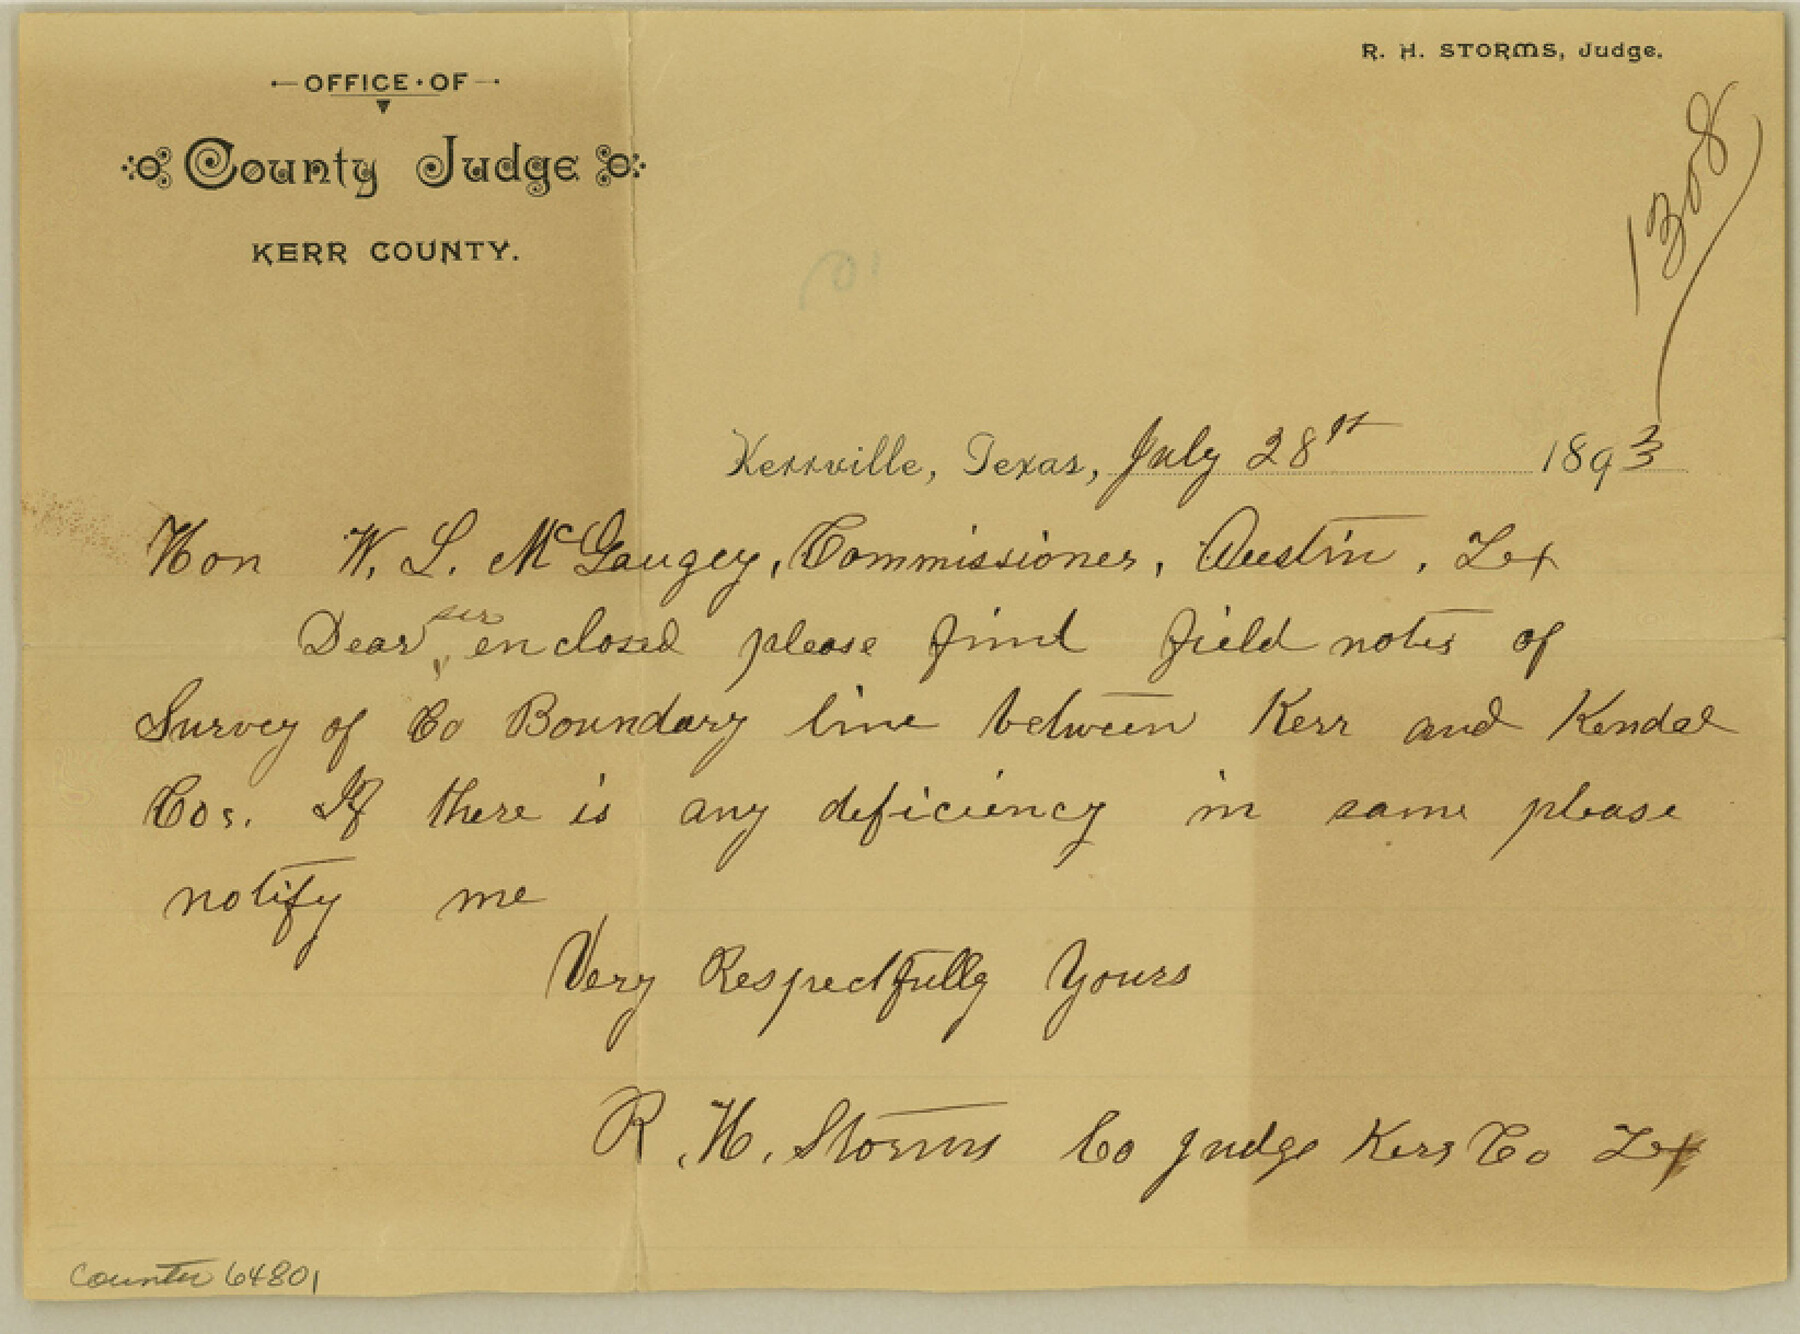 R. H. STORMS, Judge.
OFFICE OF
County Judge
KERR COUNTY.
1308
Kerrville, Texas, July 28st 1893
Hon W. L. McGaugey, Commissioner, Austin, Tex
Dear sir enclosed please find field notes of
Survey of Co Boundary line between Kerr and Kendal
Cos. If there is any deficiency in same please
notify me
Very Respectfully Yours
R. H. Storms Co Judge Kerr Co Tex
Counter 64801